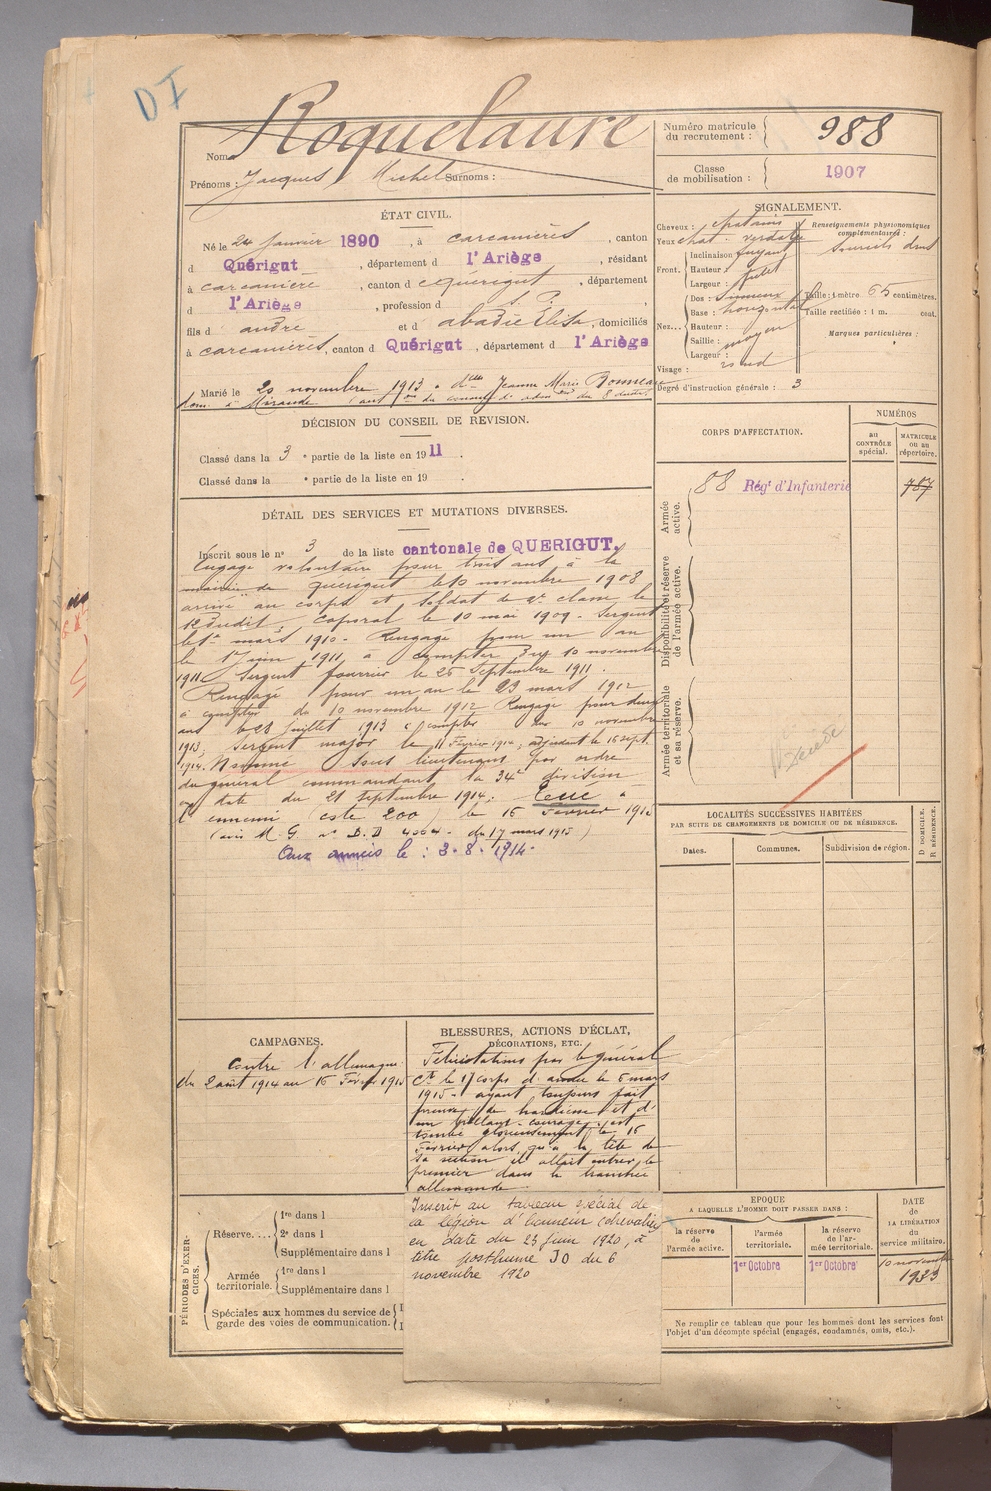 D I
Nom Roquelaure
Prénoms : Jacques Michel Surnoms :
Numéro matricule du recrutement : 988
Classe de mobilisation : 1907
ÉTAT CIVIL.
Né le 24 janvier 1890, à Carcanières, canton
d Quérigut, département d l'Ariège, résidant
à Carcanière, canton d Quérigut, département
d l'Ariège, profession d S. P.,
fils d André et d Abadie Elisa, domiciliés
à Carcanières, canton d Quérigut, département d l'Ariège
Marié le 20 novembre 1913 à dlle Jeanne Marie Bonneau
dom. à Mirande (aut on du conseil d'adm on du 8 dudit)
SIGNALEMENT.
Cheveux : chatains
Yeux chat. verdatre
Front. Inclinaison fuyant
Hauteur : petit
Largeur : petit
Nez... Dos : sinueux
Base : horizontal
Hauteur :
Saillie : moyen
Largeur :
Visage : rond
Renseignements physionomiques complémentaires :
Sourcils drus
Taille : 1 mètre 65 centimètres.
Taille rectifiée : 1 m. cent.
Marques particulières :
Degré d'instruction générale : 3
DÉCISION DU CONSEIL DE REVISION.
Classé dans la 3 e partie de la liste en 1911.
Classé dans la e partie de la liste en 19 .
DÉTAIL DES SERVICES ET MUTATIONS DIVERSES.
Inscrit sous le n° 3 de la liste cantonale de QUERIGUT.
Engagé volontaire pour trois ans à la
mairie de Quérigut le 10 novembre 1908
arrivé au corps et soldat de 2e classe le
12 dudit, Caporal le 10 mai 1909. Sergent
le 1er mars 1910. Rengagé pour un an
le 1er juin 1911 à compter du 10 novembre
1911. Sergent fourrier le 26 Septembre 1911.
Rengagé pour un an le 23 mars 1912
à compter du 10 novembre 1912 Rengagé pour deux
ans le 28 juillet 1913 à compter du 10 novembre
1913. Sergent major le 11 Février 1914, adjudant le 16 sept.
1914. Nommé sous lieutenant par ordre
du général commandant la 34e division
en date du 21 septembre 1914. Tué à
l'ennemi (cote 200) le 16 Février 1915
(avis M. G. n° D. D 4064 - du 17 mars 1915)
Aux armées le : 3.8.1914.
CORPS D'AFFECTATION.
NUMÉROS
au CONTRÔLE spécial.
MATRICULE ou au répertoire.
Armée active.
88 Régt d'Infanterie
787
Disponibilité et réserve de l'armée active.
Armée territoriale et sa réserve.
Décédé
LOCALITÉS SUCCESSIVES HABITÉES
PAR SUITE DE CHANGEMENTS DE DOMICILE OU DE RÉSIDENCE.
Dates.
Communes.
Subdivision de région.
D. DOMICILE.
R. RÉSIDENCE.
CAMPAGNES.
Contre l'allemagne
du 2 août 1914 au 16 Février 1915
BLESSURES, ACTIONS D'ÉCLAT,
DÉCORATIONS, ETC.
Félicitations par le général
Ct le 17 corps d'armée le 6 mars
1915 - ayant toujours fait
preuve de hardiesse et d'
un brillant courage, est
tombé glorieusement le 16
Février alors qu'à la tête de
sa section il allait entrer le
premier dans la tranchée
allemande.
Inscrit au tableau spécial de
la légion d'honneur (chevalier)
en date du 23 juin 1920, à
titre posthume JO du 6
novembre 1920
PÉRIODES D'EXERCICES.
Réserve....
1re dans l
2e dans l
Supplémentaire dans l
Armée territoriale.
1re dans l
Supplémentaire dans l
Spéciales aux hommes du service de
garde des voies de communication.
EPOQUE
A LAQUELLE L'HOMME DOIT PASSER DANS :
la réserve de l'armée active.
l'armée territoriale.
la réserve de l'armée territoriale.
DATE de LA LIBÉRATION du service militaire.
1er Octobre
1er Octobre
10 novembre 1933
Ne remplir ce tableau que pour les hommes dont les services font
l'objet d'un décompte spécial (engagés, condamnés, omis, etc.).